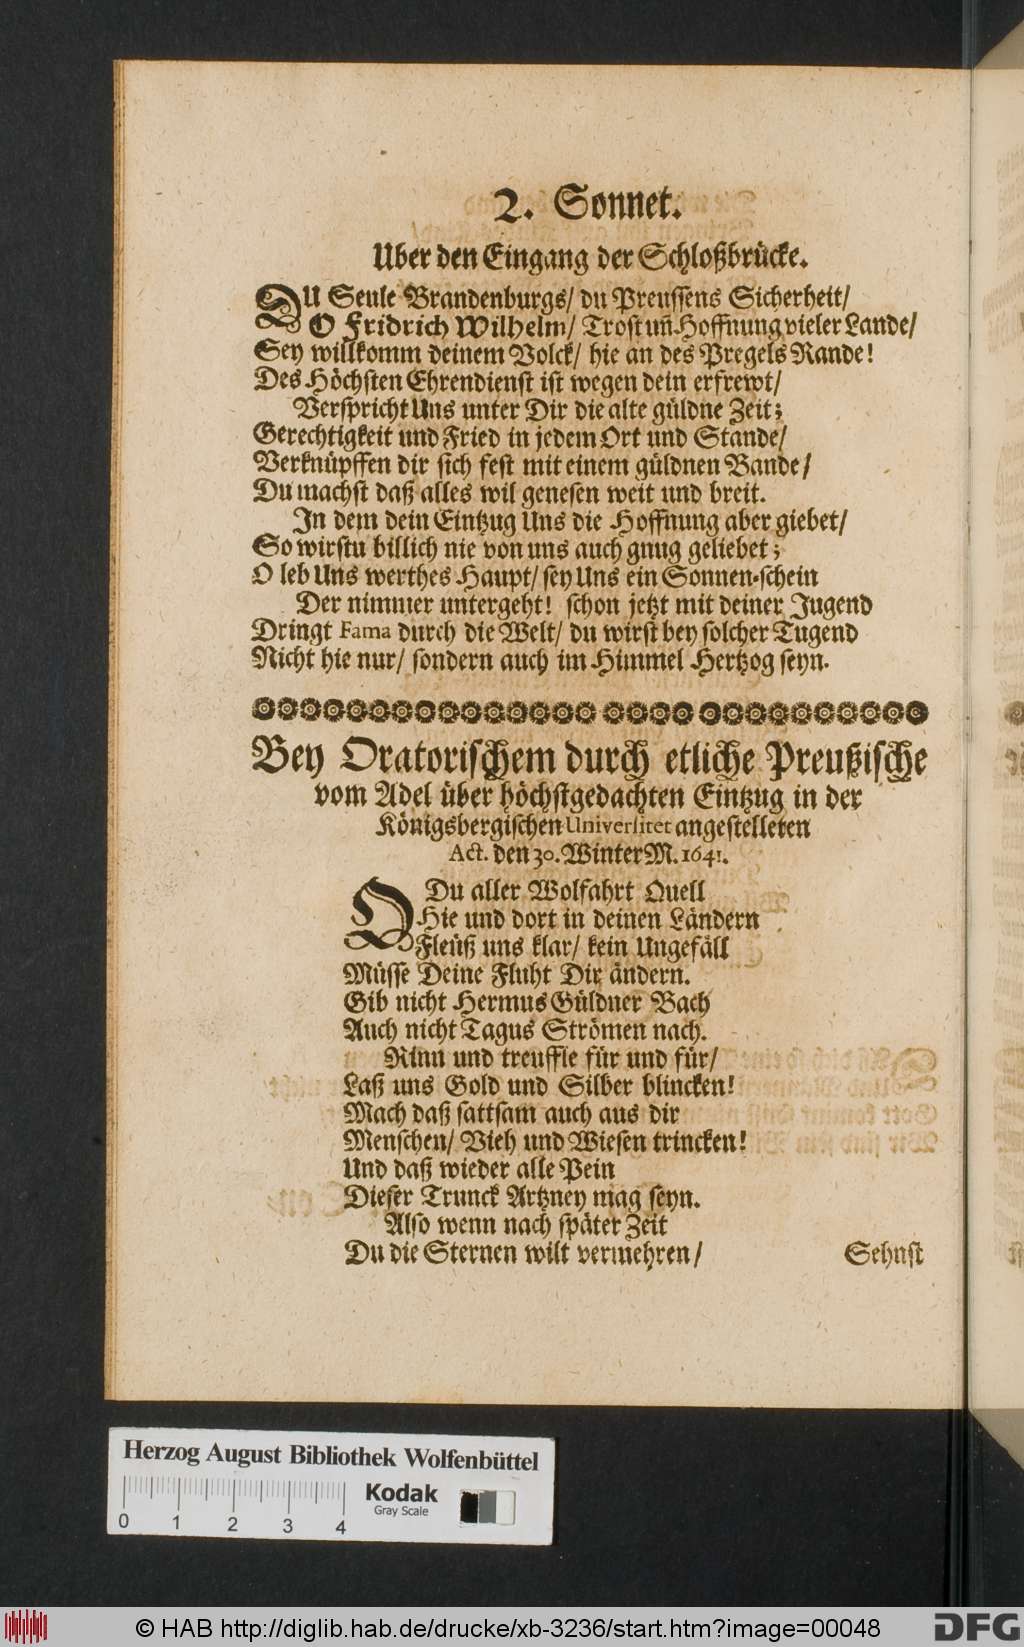 2. Sonnet.
Uber den Eingang der Schloßbrücke.
DU Seule Brandenburgs/ du Preussens Sicherheit/
O Fridrich Wilhelm/ Trost uñ Hoffnung vieler Lande/
Sey willkomm deinem Volck/ hie an des Pregels Rande!
Des Höchsten Ehrendienst ist wegen dein erfrewt/
Verspricht Uns unter Dir die alte güldne Zeit;
Gerechtigkeit und Fried in jedem Ort und Stande/
Verknüpffen dir sich fest mit einem güldnen Bande/
Du machst daß alles wil genesen weit und breit.
In dem dein Eintzug Uns die Hoffnung aber giebet/
So wirstu billich nie von uns auch gnug geliebet;
O leb Uns werthes Haupt/ sey Uns ein Sonnen-schein
Der nimmer untergeht! schon jetzt mit deiner Jugend
Dringt Fama durch die Welt/ du wirst bey solcher Tugend
Nicht hie nur/ sondern auch im Himmel Hertzog seyn.
Bey Oratorischem durch etliche Preußische
vom Adel über höchstgedachten Eintzug in der
Königsbergischen Universitet angestelleten
Act. den 30. Winter M. 1641.
O Du aller Wolfahrt Quell
Hie und dort in deinen Ländern
Fleüß uns klar/ kein Ungefäll
Müsse Deine Fluht Dir ändern.
Gib nicht Hermus Güldner Bach
Auch nicht Tagus Strömen nach.
Rinn und treuffle für und für/
Laß uns Gold und Silber blincken!
Mach daß sattsam auch aus dir
Menschen/ Vieh und Wiesen trincken!
Und daß wieder alle Pein
Dieser Trunck Artzney mag seyn.
Also wenn nach später Zeit
Du die Sternen wilt vermehren/
Sehnst
Herzog August Bibliothek Wolfenbüttel
Kodak
Gray Scale
0 1 2 3 4
© HAB http://diglib.hab.de/drucke/xb-3236/start.htm?image=00048
DFG